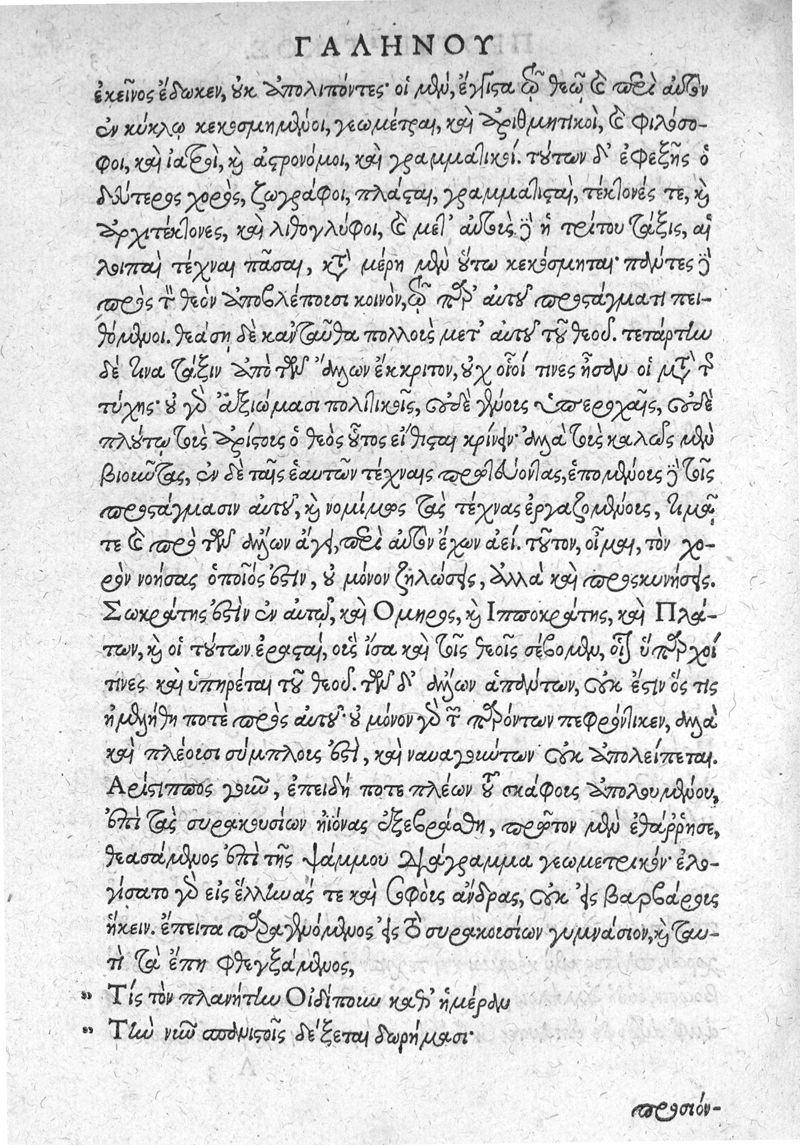 ΓΑΛΗΝΟΥ
ἐκεῖνος ἔδωκεν, οὐκ ἀπολιπόντες· οἱ μὲν, ἔγγιστα τῷ θεῷ καὶ περὶ αὐτὸν
ἐν κύκλῳ κεκοσμημένοι, γεωμέτραι, καὶ ἀριθμητικοὶ, καὶ φιλόσο-
φοι, καὶ ἰατροὶ, καὶ ἀστρονόμοι, καὶ γραμματικοί. τούτων δ' ἐφεξῆς ὁ
δεύτερος χορὸς, ζωγράφοι, πλάσται, γραμματισταὶ, τέκτονές τε, καὶ
ἀρχιτέκτονες, καὶ λιθογλύφοι, καὶ μετ' αὐτοὺς δὲ ἡ τρίτου τάξις, αἱ
λοιπαὶ τέχναι πᾶσαι, κατὰ μέρη μὲν οὕτω κεκόσμηται· πάντες δὲ
πρὸς τὸν θεὸν ἀποβλέπουσι κοινὸν, τῷ παρ' αὐτοῦ προστάγματι πει-
θόμενοι. θεάσῃ δὲ κἀνταῦθα πολλοὺς μετ' αὐτοῦ τοῦ θεοῦ. τετάρτην
δέ τινα τάξιν ἀπὸ τῶν ἄλλων ἔκκριτον, οὐχ οἷοί τινες ἦσαν οἱ μετὰ τῆς
τύχης· οὐ γὰρ ἀξιώμασι πολιτικοῖς, οὐδὲ γένους ὑπεροχαῖς, οὐδὲ
πλούτῳ τοὺς ἀρίστους ὁ θεὸς οὗτος εἴθισται κρίνειν· ἀλλὰ τοὺς καλῶς μὲν
βιοῦντας, ἐν δὲ ταῖς ἑαυτῶν τέχναις πρωτεύοντας, ἑπομένους δὲ τοῖς
προστάγμασιν αὐτοῦ, καὶ νομίμως τὰς τέχνας ἐργαζομένους, τιμᾷ
τε καὶ πρὸ τῶν ἄλλων ἄγει, περὶ αὐτὸν ἔχων ἀεί. τοῦτον, οἶμαι, τὸν χο-
ρὸν νοήσας ὁποῖός ἐστιν, οὐ μόνον ζηλώσεις, ἀλλὰ καὶ προσκυνήσεις.
Σωκράτης ἐστὶν ἐν αὐτῷ, καὶ Ομηρος, καὶ Ιπποκράτης, καὶ Πλά-
των, καὶ οἱ τούτων ἐρασταί, οὓς ἴσα καὶ τοῖς θεοῖς σέβομεν, οἷον ὕπαρχοί
τινες καὶ ὑπηρέται τοῦ θεοῦ. τῶν δ' ἄλλων ἁπάντων, οὐκ ἔστιν ὅς τις
ἠμελήθη ποτὲ πρὸς αὐτοῦ· οὐ μόνον γὰρ τῶν παρόντων πεφρόντικεν, ἀλλὰ
καὶ πλέουσι σύμπλους ἐστὶ, καὶ ναυαγούντων οὐκ ἀπολείπεται.
Αρίστιππος γοῦν, ἐπειδή ποτε πλέων τοῦ σκάφους ἀπολουμένου,
ἐπὶ τὰς συρακουσίων ἠϊόνας ἐξεβράσθη, πρῶτον μὲν ἐθάῤῥησε,
θεασάμενος ἐπὶ τῆς ψάμμου διάγραμμα γεωμετρικόν· ἐλο-
γίσατο γὰρ εἰς ἕλληνάς τε καὶ σοφοὺς ἄνδρας, οὐκ εἰς βαρβάρους
ἥκειν. ἔπειτα παραγενόμενος εἰς τὸ συρακουσίων γυμνάσιον, καὶ ταυ-
τὶ τὰ ἔπη φθεγξάμενος,
" Τίς τὸν πλανήτην Οἰδίπουν καθ' ἡμέραν
" Τὴν νῦν σπανιστοῖς δέξεται δωρήμασι·
προσιόν-